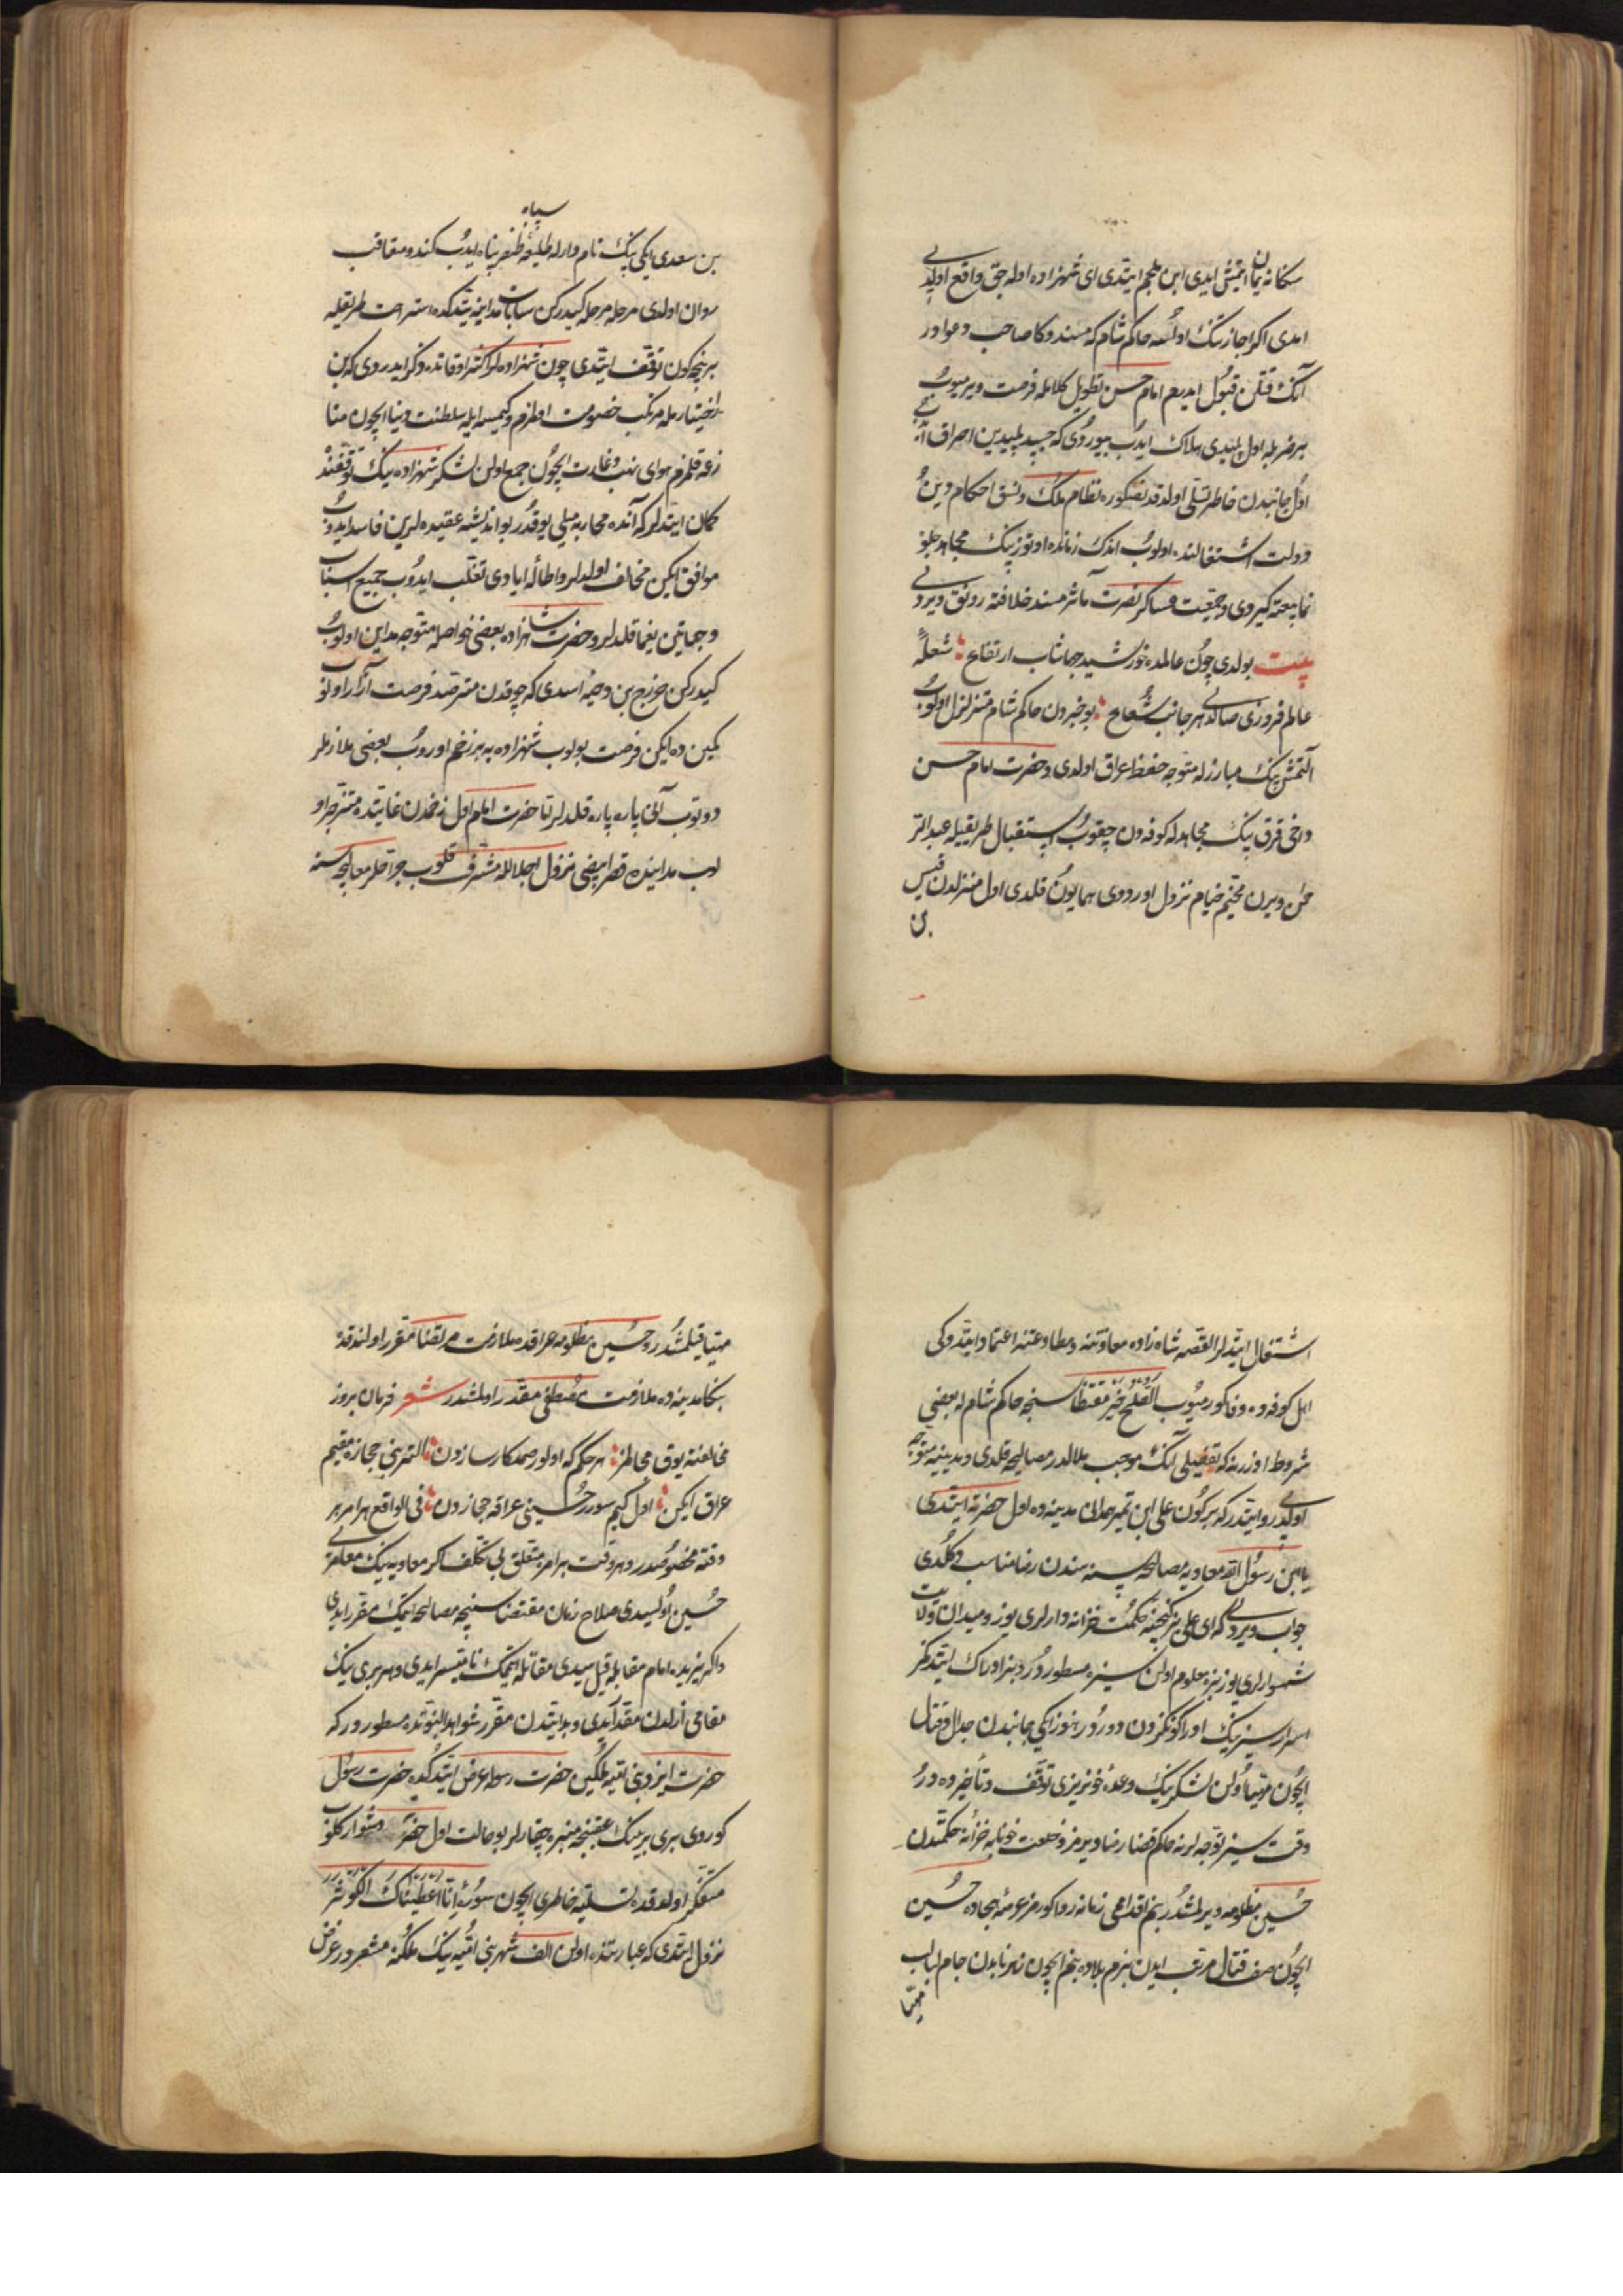 سكانه يمان ايتمش ايدى ابن ملجم ايتدى اى شهزاده اوله جق واقع اولدى
امدى اكر اجازتك اولسه حاكم شام كه مسندوكا صاحب دعوادر
آنك قتلن قبول ايديم امام حسن تطويل كلامه فرصت ويرميوب
بر ضربله اول پليدى هلاك ايدب بيوردى كه جسد پليدين احراق
اول جانبدن خاطر تسلى اولدقدنصكره نظام ملك ونسق احكام دين
ودولت اشتغالنده اولوب اندك زمانده اوتوز بيك مجاهد جلو
نمايبعته كيردى وجمعيت عساكر نصرت مآثر مسند خلافته رونق ويردى
بيت بولدى چون عالمده خورشيد جهانتاب ارتفاع شعلۀ
عالم فروزى صالدى هر جانب شعاع بو خبردن حاكم شام متزلزل اولوب
التمش بيك مبارزله متوجه حفظ عراق اولدى وحضرت امام حسن
دخى قرق بيك مجاهدله كوفه دن چقوب استقبال طريقيله عبدالر
حمن ويرن مخيم خيام نزول اوردوى همايون قلدى اول منزلدن قيس
بن
سپاه
بن سعدى ايكى بيك نام دارله طليعۀ ظفر پناه ايدب كندو متعاقب
روان اولدى مرحله مرحله كيدركن ساباط مداينه يتدكده استراحت طريقيله
بر نچه كون توقف ايتدى چون شهزاده لر اكثر اوقاتده ذكر ايدردى كه بن
اختيارمله مرتكب خصومت اولمزم وكيمسه ايله سلطنت دنيا ايچون منا
زعه قلمزم هواى نهب وغارت ايچون جمع اولن لشكر شهزاده نيك توقفند
كمان ايتدلر كه آنده محاربه ميلى يوقدر بو انديشه عقيده لرين فاسد ايدوب
موافق ايكن مخالف اولدلر واطالۀ ايادى تغلب ايدوب جميع اسباب
وجهاتين يغما قلدلر وحضرت شاهزاده بعضى خواصله متوجه مداين اولوب
كيدركن خرج بن وجيه اسدى كه چوقدن مترصد فرصت آزار اولوب
كمين ده ايكن فرصت بولوب شهزاده يه بر زخم اوروب بعضى ملازملر
دوتوب آنى پاره پاره قلدلر تا حضرت امام اول زخمدن غايتده متزجر او
لوب مداينده قصر ابيضى نزول اجلالله مشرف قلوب جراحلر معالجه سنه
اشتغال ايتدلر القصه شاه زاده معاونتنه ومطاوعتنه اعتماد ايتدوكى
اهل كوفه ده وفا كورميوب الصلح خير مقتضاسنجه حاكم شام له بعضى
شروط اوزرنه كه تفصيلى آنك موجب ملالدر مصالحه قلدى ومدينيه متوجه
اولدى روايتدر كه بر كون على ابن تميم همدانى مدينه ده اول حضرته ايتدى
يا ابن رسول الله معاويه مصالحه سنه سندن رضا مناسب دكلدى
جواب ويردى كه اى على بز كنجينۀ حكمت خزانه دارلرى يوز وميدان ولايت
شهسوارلرى يوز بزه معلوم اولن سيزه مستوردر وبز ادراك ايتدكمز
اسرار سيزنيك ادراكوكزدن دوردر هنوز ايكى جانبدن جدال وقتال
ايچون مهيا اولن لشكرنيك وعدۀ خونريزى توقف وتأخيرده در
وقت سيز توجه لرنه حاكم قضا رضا ويرمز وخلعت خونابه خزانۀ حكمتدن
حسين مظلومه ويرلمشدر بنم اقدامى زمانه روا كورمز عرصۀ هيجاده حسين
ايچون صف قتال مرتب ايدن بزم بلاده بنم ايچون زهر نابدن جام لبالب
مهيا
مهيا قيلمشدر وحسين مظلومه عراقده ملازمت مرتضا مقرر اولندقده
بكا مدينه ده ملازمت مصطفى مقدر اولمشدر شعر فرمان بروز
مخالفته يوق مجالمز هر حكم كه اولور صمد كارسازدن التمز بنى حجازه مقيم
عراق ايكن اول كيم سورر حسينى عراقه حجازدن فى الواقع هر امر بر
وقته مخصوصدر وهر وقت بر امره متعلق بى تكلف اكر معاويه نيك معاصرى
حسين اولسيدى صلاح زمان مقتضاسنجه مصالحه ايتمك مقرر ايدى
واكر يزيده امام مقابله قيلسيدى مقاتله ايتمك نا ميسر ايدى وهر برى نيك
مقامى ازلدن مقدر ايدى وبدايتدن مقرر شواهد النبوتده مسطور در كه
حضرت ايزد بنى اميه ملكين حضرت رسوله عرض ايتدكده حضرت رسول
كوردى برى بريينك عقبنجه منبره چقارلر بو حالت اول حضرته دشوار كلوب
متفكر اولدقده تسليۀ خاطرى ايچون سورۀ انا اعطيناك الكوثر
نزول ايتدى كه عبارتنده اولن الف شهر بنى اميه نيك ملكنه مشعر در عرض